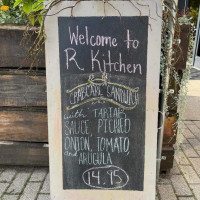 Welcome to
R. Kitchen
CRABCAKE SANDWICH
with TARTAR
SAUCE, PICKLED
ONION, TOMATO
and ARUGULA
14.95